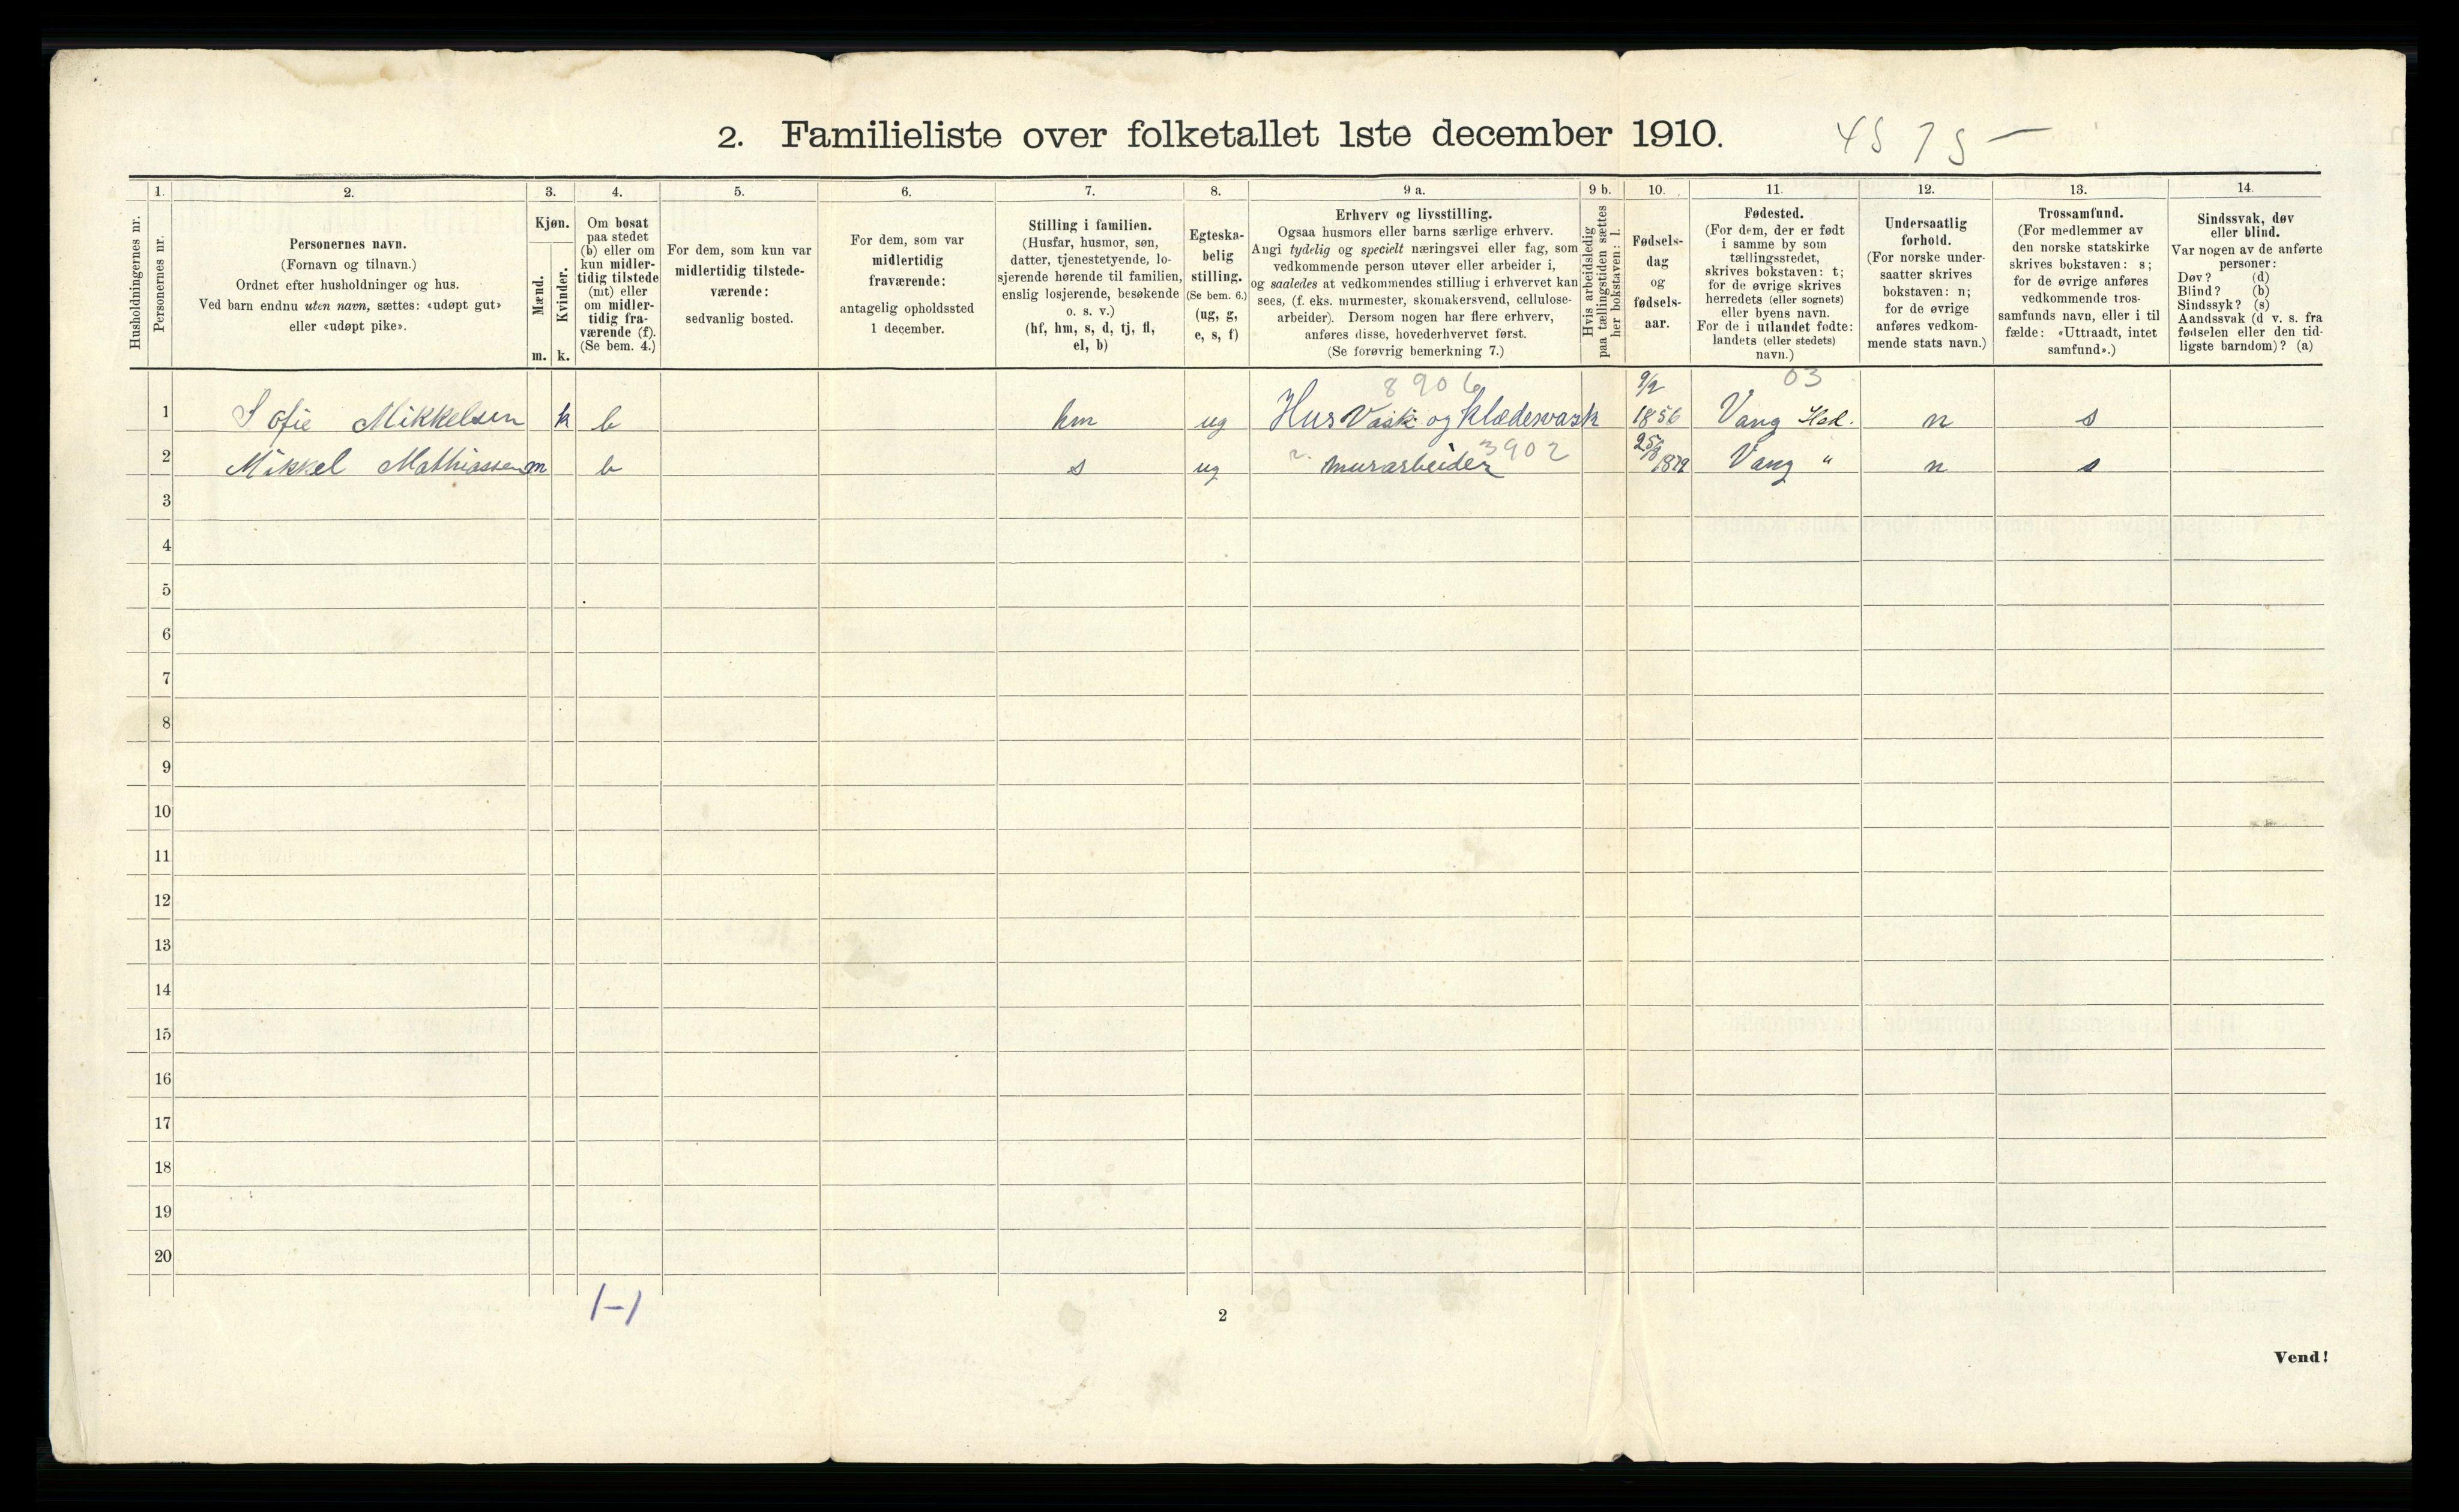 2. Familieliste over folketallet 1ste december 1910.
1. 2. 3. 4. 5. 6. 7. 8. 9 a. 9 b. 10. 11. 12. 13. 14.
Husholdningernes nr.
Personernes nr.
Personernes navn.
(Fornavn og tilnavn.)
Ordnet efter husholdninger og hus.
Ved barn endnu uten navn, sættes: «udøpt gut»
eller «udøpt pike».
Kjøn.
Mænd.
Kvinder.
m. k.
Om bosat
paa stedet
(b) eller om
kun midler-
tidig tilstede
(mt) eller
om midler-
tidig fra-
værende (f).
(Se bem. 4.)
For dem, som kun var
midlertidig tilstede-
værende:
sedvanlig bosted.
For dem, som var
midlertidig
fraværende:
antagelig opholdssted
1 december.
Stilling i familien.
(Husfar, husmor, søn,
datter, tjenestetyende, lo-
sjerende hørende til familien,
enslig losjerende, besøkende
o. s. v.)
(hf, hm, s, d, tj, fl,
el, b)
Egteska-
belig
stilling.
(Se bem. 6.)
(ug, g,
e, s, f)
Erhverv og livsstilling.
Ogsaa husmors eller barns særlige erhverv.
Angi tydelig og specielt næringsvei eller fag, som
vedkommende person utøver eller arbeider i,
og saaledes at vedkommendes stilling i erhvervet kan
sees, (f. eks. murmester, skomakersvend, cellulose-
arbeider). Dersom nogen har flere erhverv,
anføres disse, hovederhvervet først.
(Se forøvrig bemerkning 7.)
Hvis arbeidsledig
paa tællingstiden sættes
her bokstaven: l.
Fødsels-
dag
og
fødsels-
aar.
Fødested.
(For dem, der er født
i samme by som
tællingsstedet,
skrives bokstaven: t;
for de øvrige skrives
herredets (eller sognets)
eller byens navn.
For de i utlandet fødte:
landets (eller stedets)
navn.)
Undersaatlig
forhold.
(For norske under-
saatter skrives
bokstaven: n;
for de øvrige
anføres vedkom-
mende stats navn.)
Trossamfund.
(For medlemmer av
den norske statskirke
skrives bokstaven: s;
for de øvrige anføres
vedkommende tros-
samfunds navn, eller i til
fælde: «Uttraadt, intet
samfund».)
Sindssvak, døv
eller blind.
Var nogen av de anførte
personer:
Døv? (d)
Blind? (b)
Sindssyk? (s)
Aandssvak (d v. s. fra
fødselen eller den tid-
ligste barndom)? (a)
8906 9/9 03
1 Sofie Mikkelsen k b hm ug Hus Vask og klædesvask 1856 Vang Hed. n s
3902
2 Mikkel Mathiassen m b s ug murarbeider Vang " n s
3
4
5
6
7
8
9
10
11
12
13
14
15
16
17
18
19
20
1-1
2
Vend!